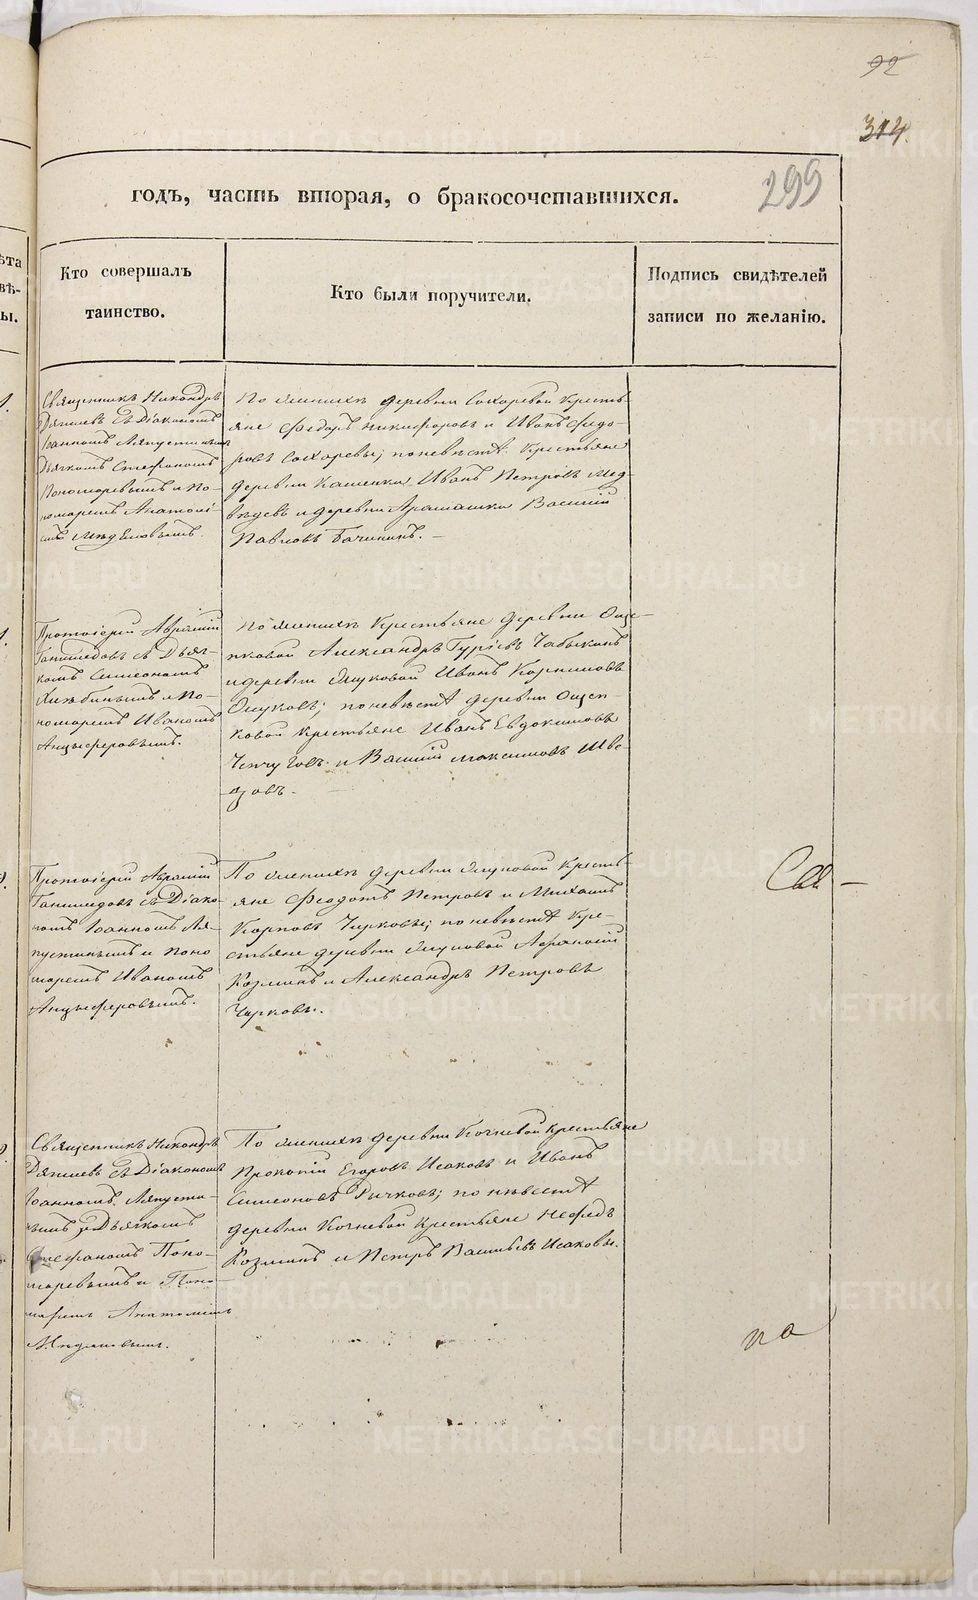 92
314.
299
годъ, часть вторая, о бракосочетавшихся.
Кто совершалъ
таинство.
Кто были поручители.
Подпись свидѣтелей
записи по желанію.
Священникъ Никандръ
съ Діакономъ
Іоанномъ Ляпустинымъ
Дьячкомъ Стефаномъ
Пономаревымъ и По-
номаремъ Анатолі-
емъ
По женихѣ деревни Сохаревой Кресть-
яне Федоръ Никифоровъ и Иванъ Федо-
ровъ Сохаревы; по невѣстѣ Крестьяне
деревни Кашенки Иванъ Петровъ Мед-
вѣдевъ и деревни Арамашки Василій
Павловъ Бачининъ.
Протоіерей Авраамій
съ Дьяч-
комъ Симеономъ
Хлѣбинымъ и По-
номаремъ Иваномъ
Анцыферовымъ.
По женихѣ Крестьяне деревни Още-
пковой Александръ Гурьевъ Чабыкинъ
и деревни Иванъ Корниловъ
по невѣстѣ деревни Ощеп-
ковой Крестьяне Иванъ Евдокимовъ
и Василій Максимовъ Шве-
цовъ.
Протоіерей Авраамій
съ Діако-
номъ Іоанномъ Ля-
пустинымъ и Поно
маремъ Иваномъ
Анцыферовымъ.
По женихѣ деревни Кресть-
яне Феодотъ Петровъ и Михаилъ
Карповъ Чирковы; по невѣстѣ Кре-
стьяне деревни Афанасій
Козминъ и Александръ Петровъ
Чирковы.
Священникъ Никандръ
съ Діакономъ
Іоанномъ Ляпусти-
нымъ Дьячкомъ
Стефаномъ Поно-
маревымъ и Поно-
маремъ Анатоліемъ
По женихѣ деревни Кочневой Крестьяне
Прокопій Егоровъ Исаковъ и Иванъ
Симеоновъ Ричковъ; по невѣстѣ
деревни Кочневой Крестьяне Нефедъ
Козминъ и Петръ Васильевъ Исаковы.
по
METRIKI.GASO-URAL.RU